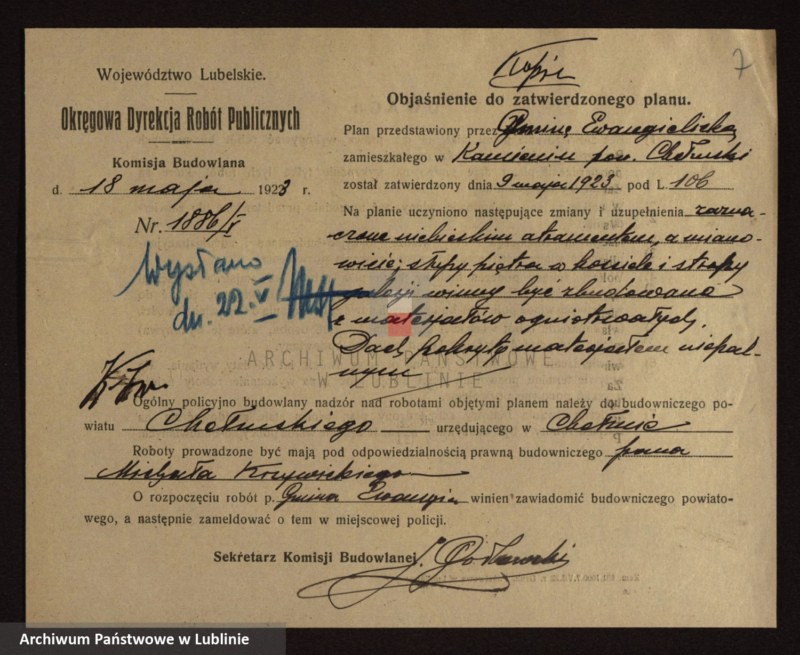 7
Kopję
Województwo Lubelskie.
Okręgowa Dyrekcja Robót Publicznych
Komisja Budowlana
d. 18 maja 1923 r.
Nr. 1886/V
Wysłano
dn. 22 V
Objaśnienie do zatwierdzonego planu.
Plan przedstawiony przez Gminę Ewangielicką
zamieszkałego w Kamieniu pow. Chełmski
został zatwierdzony dnia 9 maja 1923 pod L. 106
Na planie uczyniono następujące zmiany i uzupełnienia zazna-
czone niebieskim atramentem, a miano-
wicie; słupy piętra w kościele i stropy
winny być zbudowane
z materjałów ogniotrwałych.
Dach pokryty materjałem niepal-
nym
ARCHIWUM PAŃSTWOWE
W LUBLINIE
Ogólny policyjno budowlany nadzór nad robotami objętymi planem należy do budowniczego po-
wiatu Chełmskiego urzędującego w Chełmie
Roboty prowadzone być mają pod odpowiedzialnością prawną budowniczego pana
Michała Krzywickiego
O rozpoczęciu robót p. Gmina Ewangie winien zawiadomić budowniczego powiato-
wego, a następnie zameldować o tem w miejscowej policji.
Sekretarz Komisji Budowlanej
Archiwum Państwowe w Lublinie